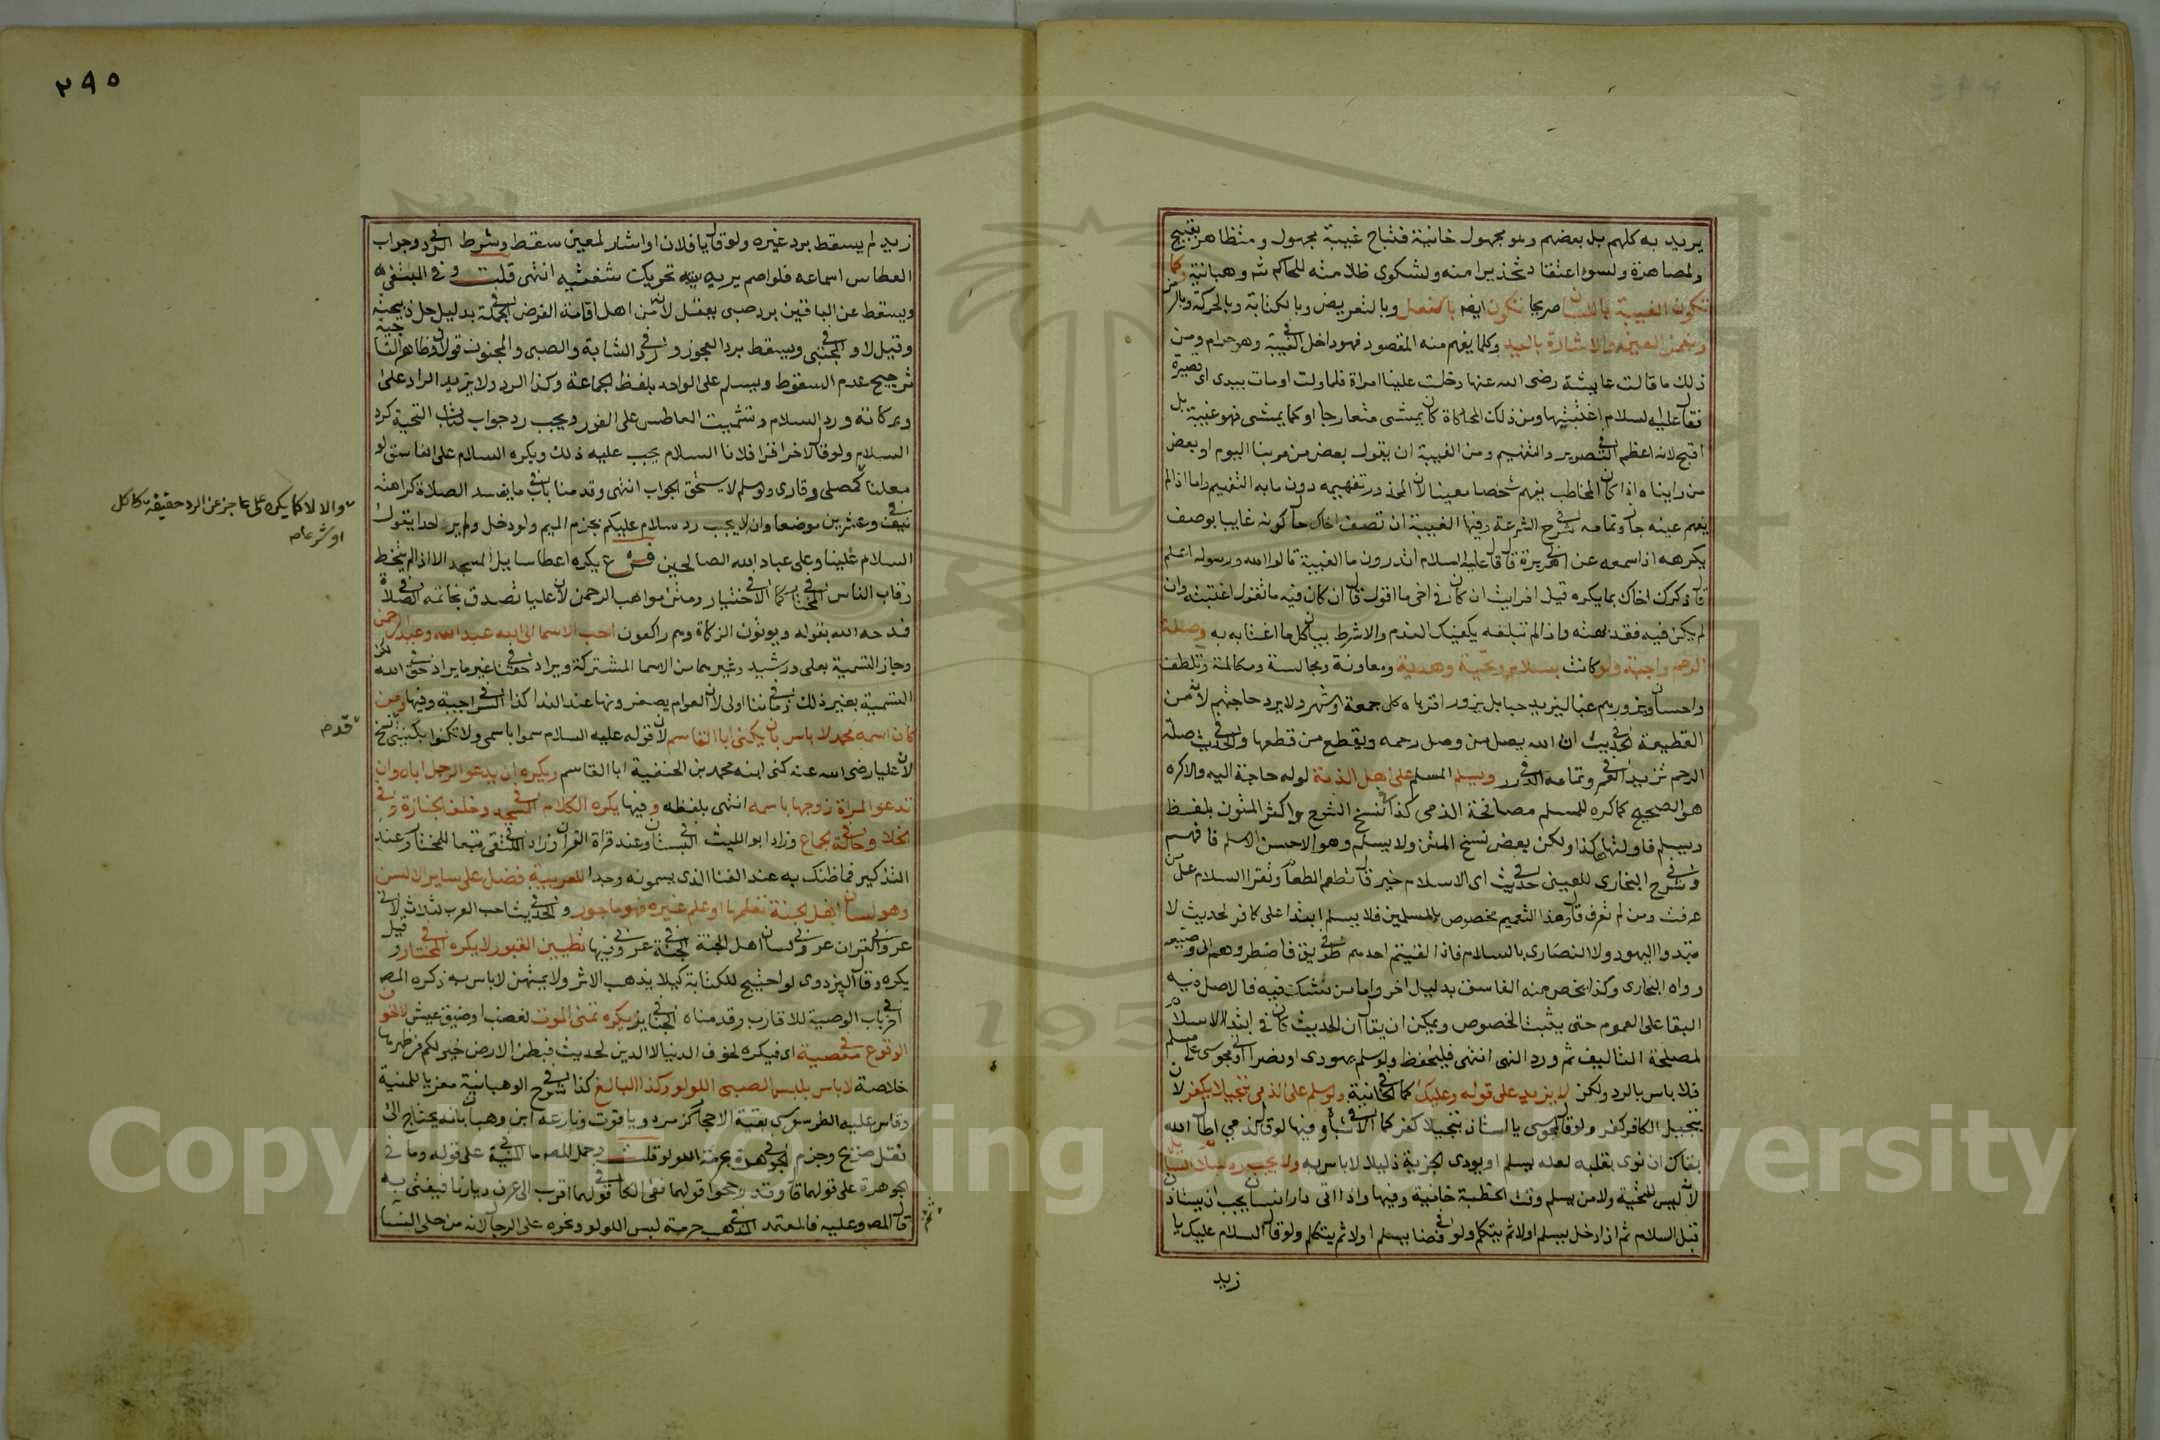 يريد به كلهم بل بعضهم وهو مجهول خانية فتباح غيبة مجهول ومتظاهر بقبيح
ولمصاهرة ولسوء اعتقاد تحذيرا منه ولشكوى ظلامته للحاكم شرح وهبانية وكما
تكون الغيبة باللسان صريحا تكون ايضا بالفعل وبالتعريض وبالكتابة وبالحركة وبالرمز
وبغمز العين والاشارة باليد وكلما يفهم منه المقصود فهو داخل في الغيبة وهو حرام ومن
ذلك ما قالت عايشة رضى الله عنها دخلت علينا امراة فلما ولت اومات بيدى اى قصيرة
فقال عليه السلام اغتبتيها ومن ذلك المحاكاة كان يمشى متعارجا او كما يمشى فهو غيبة بل
اقبح لانه اعظم في التصوير والتفهيم ومن الغيبة ان يقول بعض من مر بنا اليوم او بعض
من رايناه اذا كان المخاطب يفهم شخصا معينا لان المحذور تفهيمه دون ما به التفهيم واما اذا لم
يفهم عينه جاز وتمامه في شرح الشرعة وفيها الغيبة ان تصف اخاك حال كونه غايبا بوصف
يكرهه اذا سمعه عن ابى هريرة قال قال عليه السلام اتدرون ما الغيبة قالوا الله ورسوله اعلم
قال ذكرك اخاك بما يكره قيل افرايت ان كان في اخى ما اقول قال ان كان فيه ما تقول اغتبته وان
لم يكن فيه فقد بهته واذا لم تبلغه يكفيك الندم والا شرط بيان كل ما اغتابه به وصلة
الرحم واجبة ولو كانت بسلام وتحية وهدية ومعاونة ومجالسة ومكالمة وتلطف
واحسان ويزورهم غبا ليزيد حبا بل يزور اقرباه كل جمعة او شهر ولا يرد حاجتهم لانه من
القطيعة في الحديث ان الله يصل من وصل رحمه ويقطع من قطعها وفي الحديث صلة
الرحم تزيد في العمر وتمامه في الدرر ويسلم المسلم على اهل الذمة لو له حاجة اليه والا كره
هو الصحيح كما كره للمسلم مصافحة الذمى كذا في نسخ الشرح واكثر المتون بلفظ
ويسلم فاولتها هكذا ولكن بعض نسخ المتن ولا يسلم وهو الاحسن الاسلم فافهم
وفي شرح البخارى للعينى في حديث اى الاسلام خير قال تطعم الطعام وتقرا السلام على من
عرفت ومن لم تعرف قال وهذا التعميم مخصوص بالمسلمين فلا يسلم ابتدا على كافر لحديث لا
تبتدوا اليهود ولا النصارى بالسلام فاذا لقيتم احدهم في طريق فاضطروهم الى اضيقه
رواه البخارى وكذا يخص منه الفاسق بدليل اخر واما من شك فيه فالاصل فيه
البقا على العموم حتى يثبت الخصوص ويمكن ان يقال ان الحديث كان في ابتدا الاسلام
لمصلحة التاليف ثم ورد النهى انتهى فليحفظ ولو سلم يهودى او نصرانى او مجوسى على مسلم
فلا باس بالرد ولكن لا يزيد على قوله وعليك كما في الخانية ولو سلم على الذمى تبجيلا يكفر لان
تبجيل الكافر كفر ولو قال لمجوسى يا استاذ تبجيلا كفر كما في الاشباه وفيها لو قال لذمى اطال الله
بقاك ان نوى بقلبه لعله يسلم او يودى الجزية ذليلا لا باس به ولا يجب رد سلام السايل
لانه ليس للتحية ولا من يسلم وقت الخطبة خانية وفيها واذا اتى دار انسان يجب ان يستاذن
قبل السلام ثم اذا دخل يسلم اولا ثم يتكلم ولو في فضا يسلم اولا ثم يتكلم ولو قال السلام عليك يا
زيد
٢٩٥
زيد لم يسقط برد غيره ولو قال يا فلان او اشار لمعين سقط وشرط في الرد وجواب
العطاس اسماعه فلو اصم يريه تحريك شفتيه انتهى قلت وفي المبتغى
ويسقط عن الباقين برد صبى يعقل لانه من اهل اقامة الفرض في الجملة بدليل حل ذبيحته
وقيل لا وفي المجتبى ويسقط برد العجوز وفي رد الشابة والصبى والمجنون قولان وظاهر التاجية
ترجيح عدم السقوط ويسلم على الواحد بلفظ الجماعة وكذا الرد ولا يزيد الراد على
وبركاته ورد السلام وتشميت العاطس على الفور ويجب رد جواب كتاب التحية كرد
السلام ولو قال لاخر اقرا فلانا السلام يجب عليه ذلك ويكره السلام على الفاسق لو
معلنا كمصلى وقارى ولو سلم لا يستحق الجواب انتهى وقدمنا في باب ما يفسد الصلاة كراهته
في نيف وعشرين موضعا وانه لا يجب رد سلام عليكم بجزم الميم ولو دخل ولم ير احدا يقول
السلام علينا وعلى عباد الله الصالحين فرع يكره اعطا سايل المسجد الا اذا لم يتخط
رقاب الناس في المختار كما في الاختيار ومتن مواهب الرحمن لان عليا تصدق بخاتمه في الصلاة
فمدحه الله بقوله ويوتون الزكاة وهم راكعون احب الاسما الى الله عبد الله وعبد الرحمن
وجاز التسمية بعلى ورشيد وغيرهما من الاسما المشتركة ويراد في حقنا غير ما يراد في حق الله لكن
التسمية بغير ذلك في زماننا اولى لان العوام يصغرونها عند الندا كذا في السراجية وفيها ومن
كان اسمه محمد لا باس بان يكنى ابا القاسم لان قوله عليه السلام سموا باسمى ولا تكنوا بكنيتى نسخ
لان عليا رضى الله عنه كنى ابنه محمد بن الحنفية ابا القاسم ويكره ان يدعو الرجل اباه وان
تدعو المراة زوجها باسمه انتهى بلفظه وفيها يكره الكلام في المسجد وخلف الجنازة وفي
الخلا وفي حالة الجماع وزاد ابو الليث في البستان وعند قراة القران وزاد في الملتقى تبعا للمختار وعند
التذكير فما ظنك به عند الغنا الذى يسمونه وجدا للعربية فضل على ساير الالسن
وهو لسان اهل الجنة من تعلمها او علم غيره فهو ماجور وفي الحديث احب العرب لثلاث لانى
عربى والقران عربى ولسان اهل الجنة في الجنة عربى وفيها تطيين القبور لا يكره في المختار وقيل
يكره وقال البزدوى لو احتيج للكتابة كيلا يذهب الاثر ولا يمتهن لا باس به ذكره المص
في اخر باب الوصية للاقارب وقدمناه في الجنايز يكره تمنى الموت لغضب او ضيق عيش الا لخوف
الوقوع في معصية اى فيكره لخوف الدنيا لا الدين لحديث فبطن الارض خير لكم من ظهرها
خلاصة لا باس بلبس الصبى اللولو وكذا البالغ كذا في شرح الوهبانية معزيا للمنية
وقاس عليه الطرسوسى بقية الاحجار كزمرد وياقوت ونازعه ابن وهبان بانه يحتاج الى
نقل صريح وجزم في الجوهرة بحرمة اللولو قلت وحمل المص ما في المنية على قوله وما في
الجوهرة على قولهما قال وقد رجحوا قولهما ففى الكافى قولهما اقرب الى عرف ديارنا فيفتى به
قال المص وعليه فالمعتمد في المذهب حرمة لبس اللولو ونحوه على الرجال لانه من حلى النسا
والا لا كما يكره على عاجز عن الرد حقيقة كاكل
او شرعا صح
قدم
ثم
Copyright © King Saud University